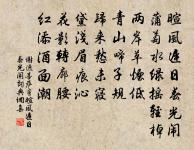 暄風遲日春光鬧
蒲萄水綠搖輕棹
兩岸草煙低
青山啼子規
歸來愁未寢
黛淺眉痕沁
花影轉廊腰
紅添酒面潮
謝逸菩薩蠻暄風遲日
春光鬧詞典詞集